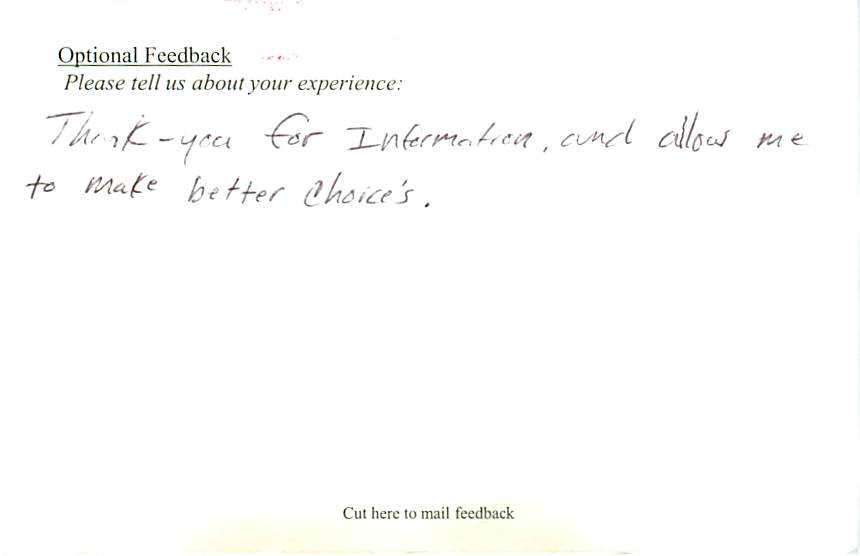 Optional Feedback
Please tell us about your experience:
Thank-you for Information, and allow me
to make better Choice's.
Cut here to mail feedback